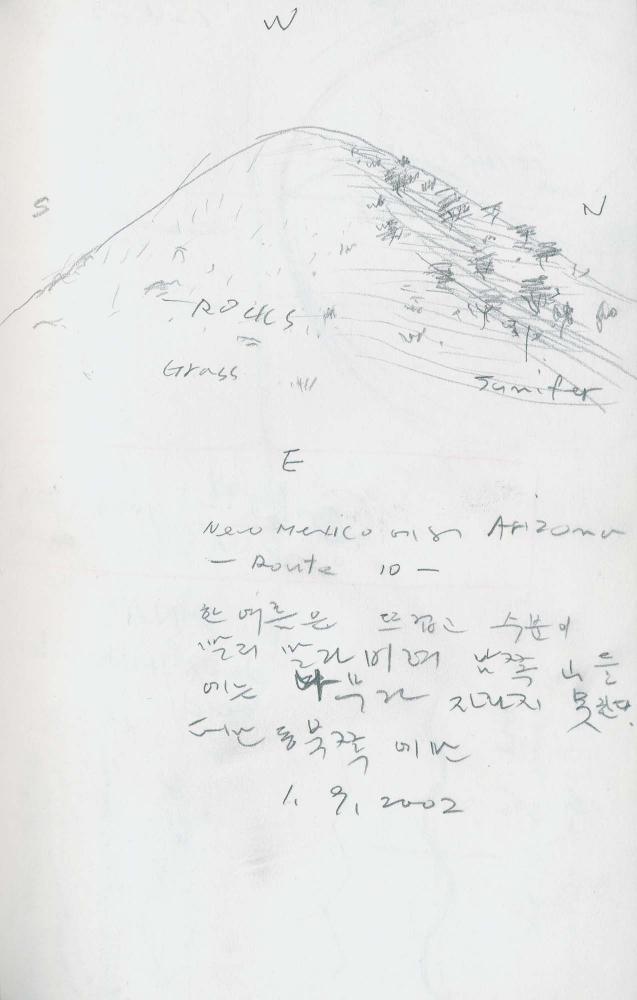 W
S
N
ROCKS
Grass
Junifer
E
New Mexico에서 Arizona
- Route 10 -
한 여름은 뜨겁고 수분이
빨리 말라 버려 남쪽 산들
에는 나무가 자라지 못한다.
동북쪽 에만
1. 9, 2002